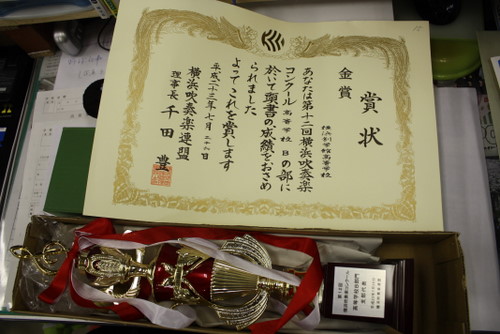 賞状
金賞
横浜創学館高等学校
あなたは第十二回横浜吹奏楽
コンクール高等学校Bの部に
於いて頭書の成績をおさめ
られました
よってこれを賞します
平成二十三年七月二十六日
横浜吹奏楽連盟
理事長 千田 豊